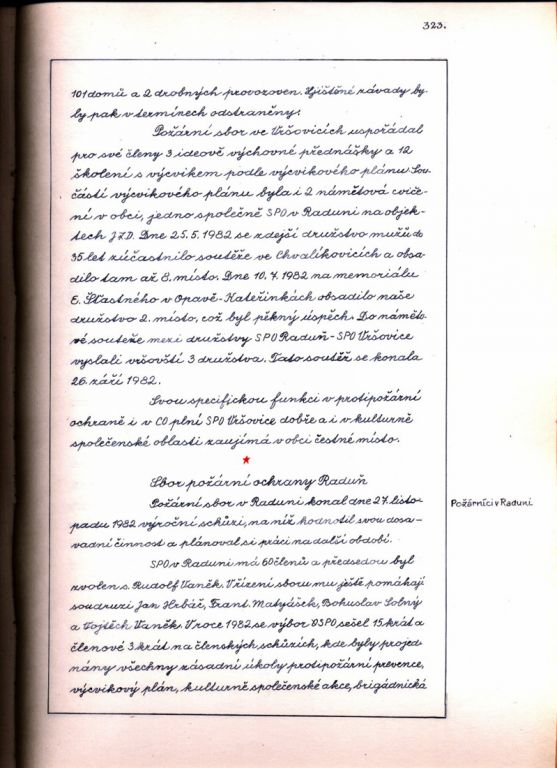 323.
101 domů a 2 drobných provozoven. Zjištěné závady by-
ly pak v termínech odstraněny.
Požární sbor ve Vršovicích uspořádal
pro své členy 3 ideově výchovné přednášky a 12
školení s výcvikem podle výcvikového plánu. Sou-
částí výcvikového plánu byla i 2 námětová cviče-
ní v obci, jedno společně SPO v Raduni na objek-
tech JZD. Dne 25. 5. 1982 se zdejší družstvo mužů do
35 let zúčastnilo soutěže ve Chvalíkovicích a obsa-
dilo tam až 8. místo. Dne 10. 7. 1982 na memoriálu
E. Šťastného v Opavě-Kateřinkách obsadilo naše
družstvo 2. místo, což byl pěkný úspěch. Do náměto-
vé soutěže mezi družstvy SPO Raduň - SPO Vršovice
vyslali vršovští 3 družstva. Tato soutěž se konala
26. září 1982.
Svou specifickou funkci v protipožární
ochraně i v CO plní SPO Vršovice dobře a i v kulturně
společenské oblasti zaujímá v obci čestné místo.
Sbor požární ochrany Raduň
Požární sbor v Raduni konal dne 27. listo-
padu 1982 výroční schůzi, na níž hodnotil svou dosa-
vadní činnost a plánoval si práci na další období.
Požárníci v Raduni.
SPO v Raduni má 60 členů a předsedou byl
zvolen s. Rudolf Vaněk. V řízení sboru mu ještě pomáhají
soudruzi Jan Hrbáč, Frant. Matyášek, Bohuslav Solný
a Vojtěch Vaněk. V roce 1982 se výbor OSPO sešel 15. krát a
členové 3. krát na členských schůzích, kde byly projed-
nány všechny zásadní úkoly protipožární prevence,
výcvikový plán, kulturně společenské akce, brigádnická